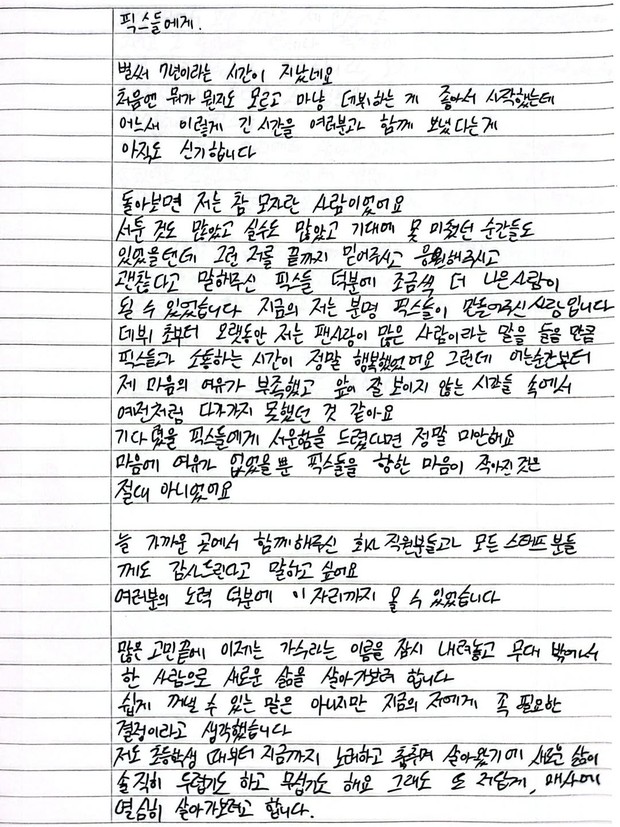 픽스들에게.
벌써 7년이라는 시간이 지났네요
처음엔 뭐가 뭔지도 모르고 마냥 데뷔하는 게 좋아서 시작했는데
어느새 이렇게 긴 시간을 여러분과 함께 보냈다는게
아직도 신기합니다
돌아보면 저는 참 모자란 사람이었어요
서툰 것도 많았고 실수도 많았고 기대에 못 미쳤던 순간들도
있었을텐데 그런 저를 끝까지 믿어주시고 응원해주시고
괜찮다고 말해주신 픽스들 덕분에 조금씩 더 나은사람이
될 수 있었습니다 지금의 저는 분명 픽스들이 만들어주신 사람입니다
데뷔 초부터 오랫동안 저는 팬사랑이 많은 사람이라는 말을 들을 만큼
픽스들과 소통하는 시간이 정말 행복했었어요 그런데 어느순간부터
제 마음의 여유가 부족했고 앞이 잘 보이지 않는 시간들 속에서
예전처럼 다가가지 못했던 것 같아요
기다렸을 픽스들에게 서운함을 드렸다면 정말 미안해요
마음에 여유가 없었을 뿐 픽스들을 향한 마음이 작아진것은
절대 아니었어요
늘 가까운 곳에서 함께해주신 회사 직원분들과 모든 스태프분들
께도 감사드린다고 말하고 싶어요
여러분의 노력 덕분에 이 자리까지 올 수 있었습니다
많은 고민끝에 이제는 가수라는 이름을 잠시 내려놓고 무대 밖에서
한 사람으로 새로운 삶을 살아가보려 합니다
쉽게 꺼낼 수 있는 말은 아니지만 지금의 저에게 꼭 필요한
결정이라고 생각했습니다
저도 초등학생 때부터 지금까지 노래하고 춤추며 살아왔기에 새로운 삶이
솔직히 두렵기도 하고 무섭기도 해요 그래도 또 저답게, 매사에
열심히 살아가보려고 합니다.